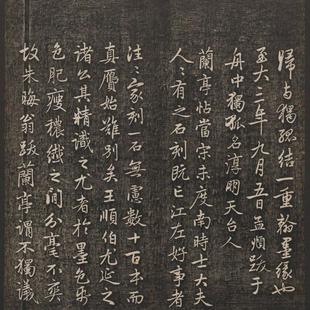 歸与獨孤結一重翰墨緣也
至大三年九月五日孟頫跋于
舟中獨孤名淳朋天台人
蘭亭帖當宋未度南時士大夫
人人有之石刻既亡江左好事者
往往家刻一石無慮數十百本而
真贋始難別矣王順伯尤延之
諸公其精識之尤者於墨色紙
色肥瘦穠纖之間分毫不爽
故朱晦翁跋蘭亭謂不獨議